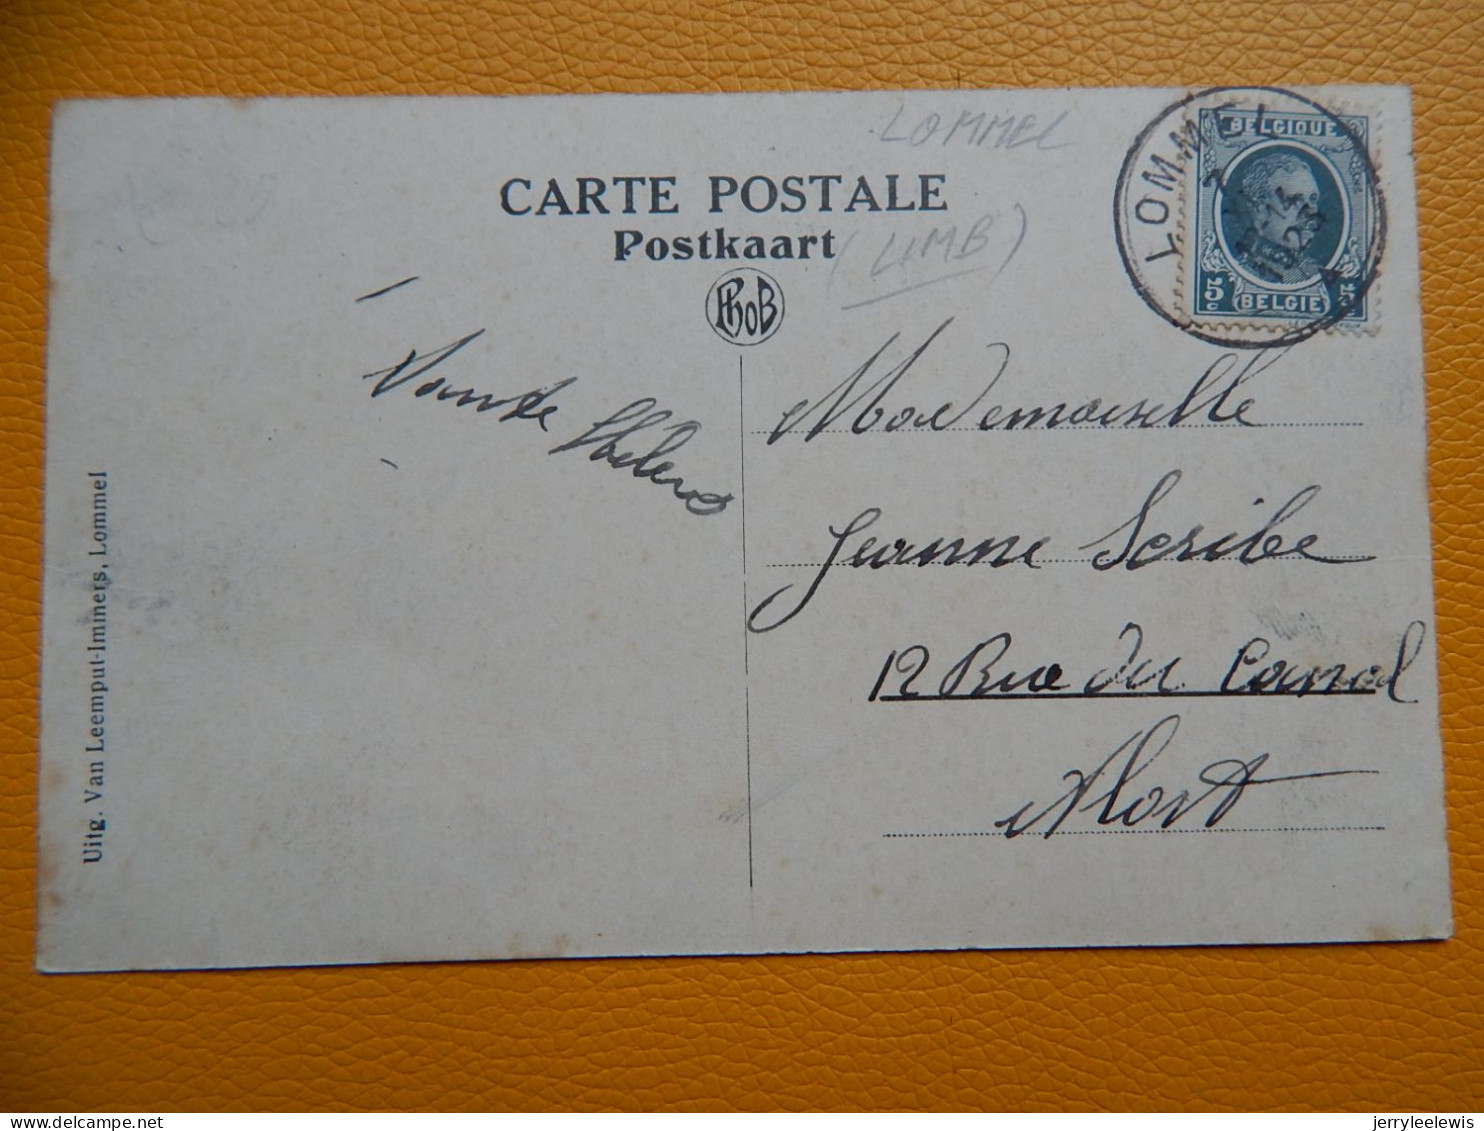 LOMMEL
CARTE POSTALE
Postkaart
(LIMB)
PhoB
LOMMEL
BELGIQUE
14
1923
5c
BELGIE
Mademoiselle
Jeanne Scribe
12 Rue du Canal
Alost
Uitg. Van Leemput-Immers, Lommel
jerryleelewis